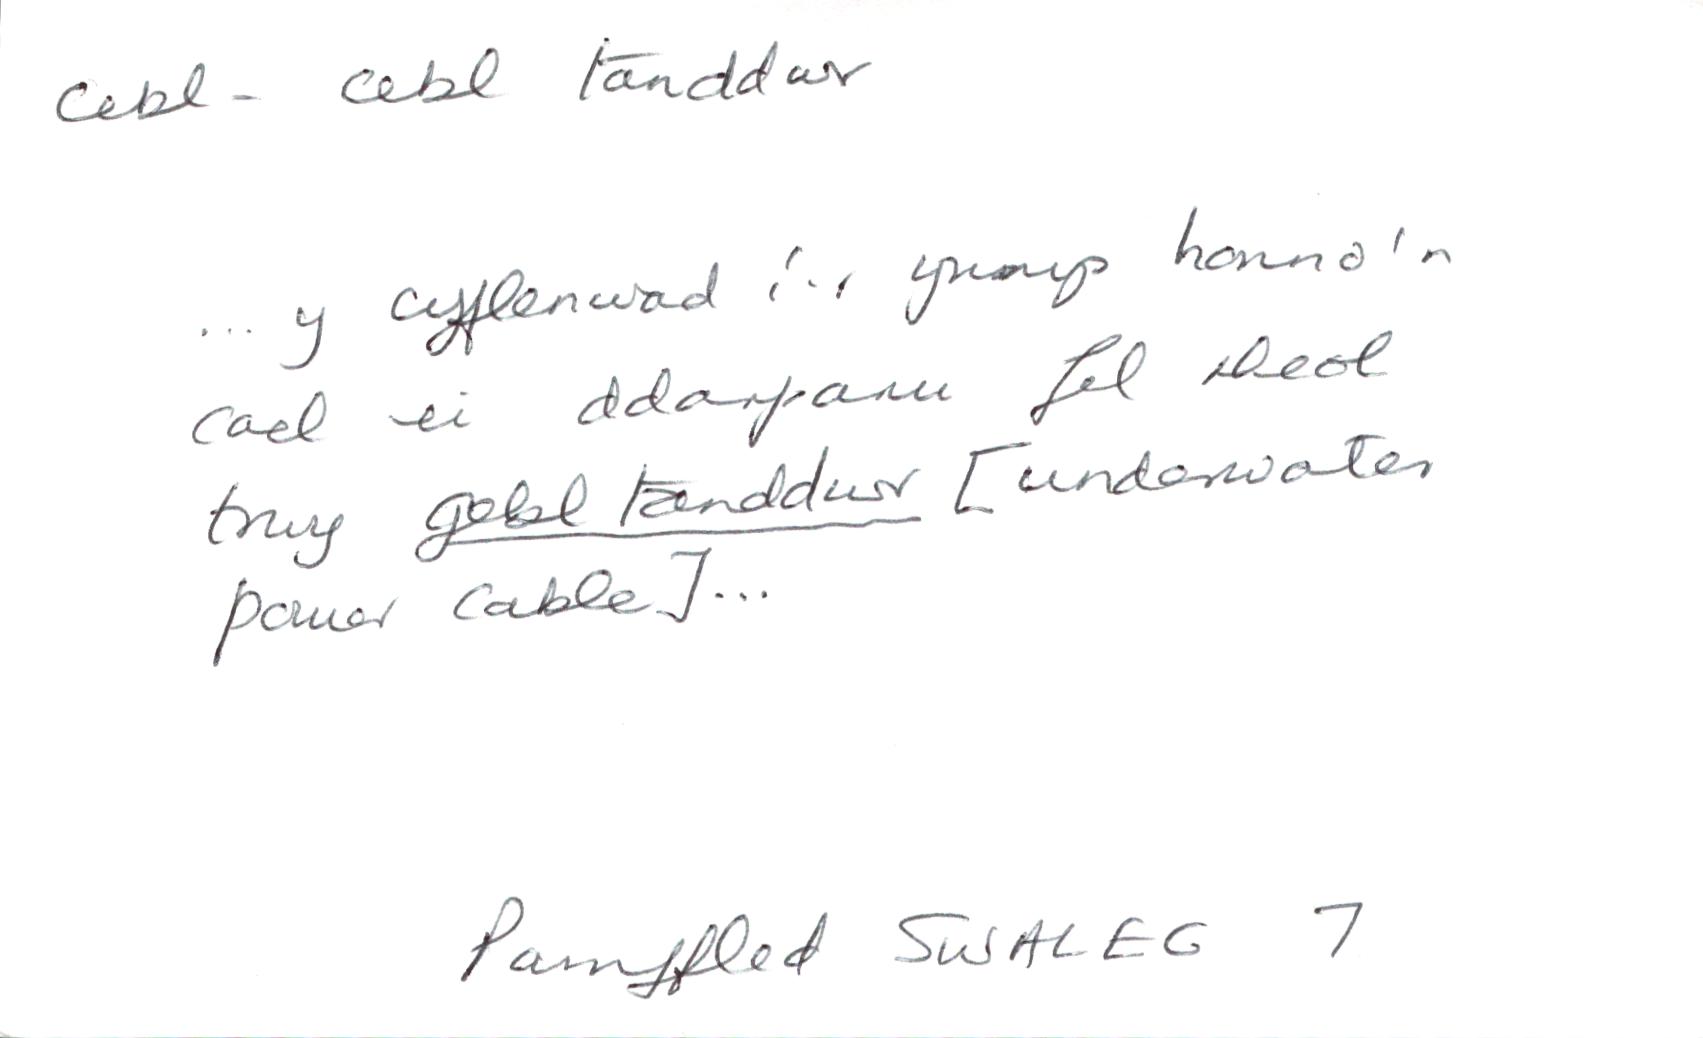 cebl - cebl tanddwr
... y cyflenwad i'r pwmp honno'n
cael ei ddarparu fel rheol
trwy gebl tanddwr [underwater
power cable]...
Pamffled SWALEG 7